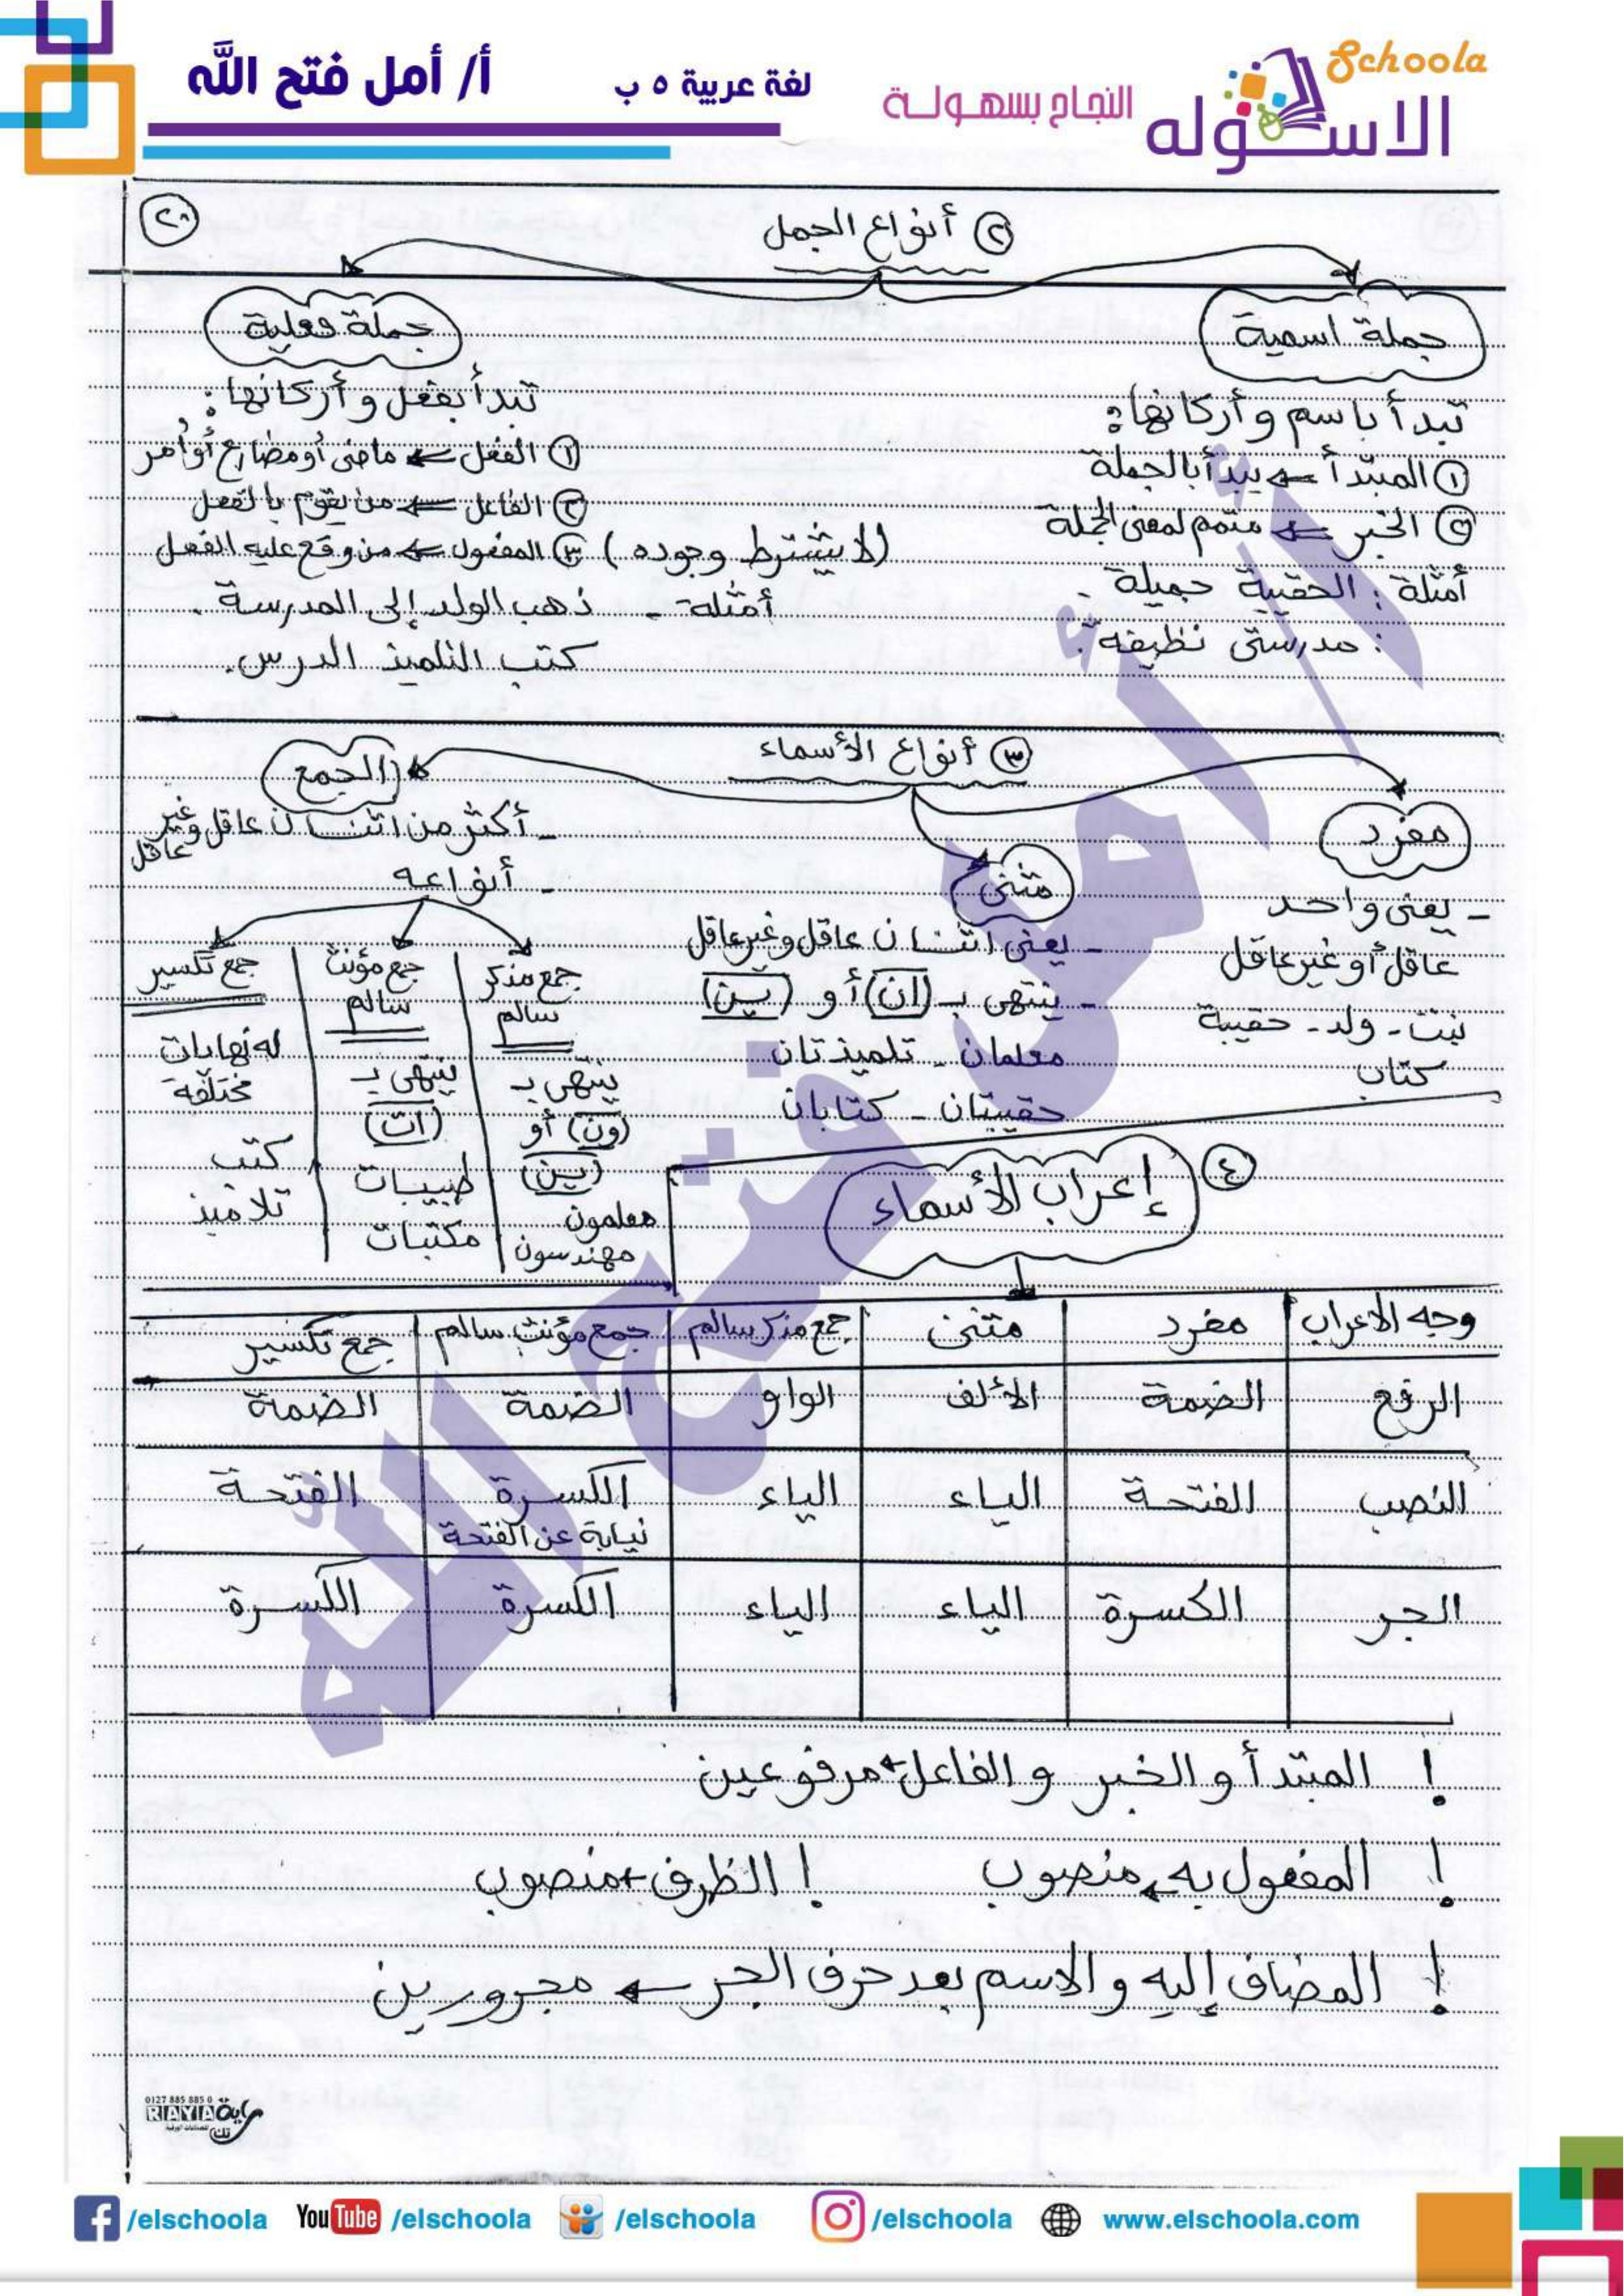 Schoola
الاسكوله
النجاح بسهولة
لغة عربية ٥ ب
أ/ أمل فتح الله
٢٠
٢ أنواع الجمل
جملة اسمية
تبدأ باسم وأركانها:
١ المبتدأ ← يبدأ بالجملة
٢ الخبر ← متمم لمعنى الجملة
أمثلة: الحقيبة جميلة.
: مدرستى نظيفة.
جملة فعلية
تبدأ بفعل وأركانها:
١ الفعل ← ماضى أو مضارع أو أمر
٢ الفاعل ← من يقوم بالفعل
(لا يشترط وجوده) ٣ المفعول ← من وقع عليه الفعل
أمثلة - ذهب الولد إلى المدرسة.
كتب التلميذ الدرس.
٣ أنواع الأسماء
مفرد
- يعنى واحد
عاقل أو غير عاقل
بنت - ولد - حقيبة
كتاب
مثنى
- يعنى اثنان عاقل وغير عاقل
- ينتهى بـ (ان) أو (ين)
معلمان - تلميذتان
حقيبتان - كتابان
الجمع
- أكثر من اثنان عاقل وغير عاقل
- أنواعه
جمع مذكر سالم
ينتهى بـ
(ون) أو
(ين)
معلمون
مهندسون
جمع مؤنث سالم
ينتهى بـ
(ات)
طبيبات
مكتبات
جمع تكسير
له نهايات
مختلفة
كتب
تلاميذ
٤ إعراب الأسماء
وجه الاعراب مفرد مثنى جمع مذكر سالم جمع مؤنث سالم جمع تكسير
الرفع الضمة الألف الواو الضمة الضمة
النصب الفتحة الياء الياء الكسرة نيابة عن الفتحة الفتحة
الجر الكسرة الياء الياء الكسرة الكسرة
! المبتدأ والخبر والفاعل ← مرفوعين
! المفعول به ← منصوب ! الظرف ← منصوب
! المضاف إليه والاسم بعد حرف الجر ← مجرورين
أ/ أمل فتح الله
0127 885 885 0
RAYA راية
تك
/elschoola YouTube /elschoola /elschoola /elschoola www.elschoola.com